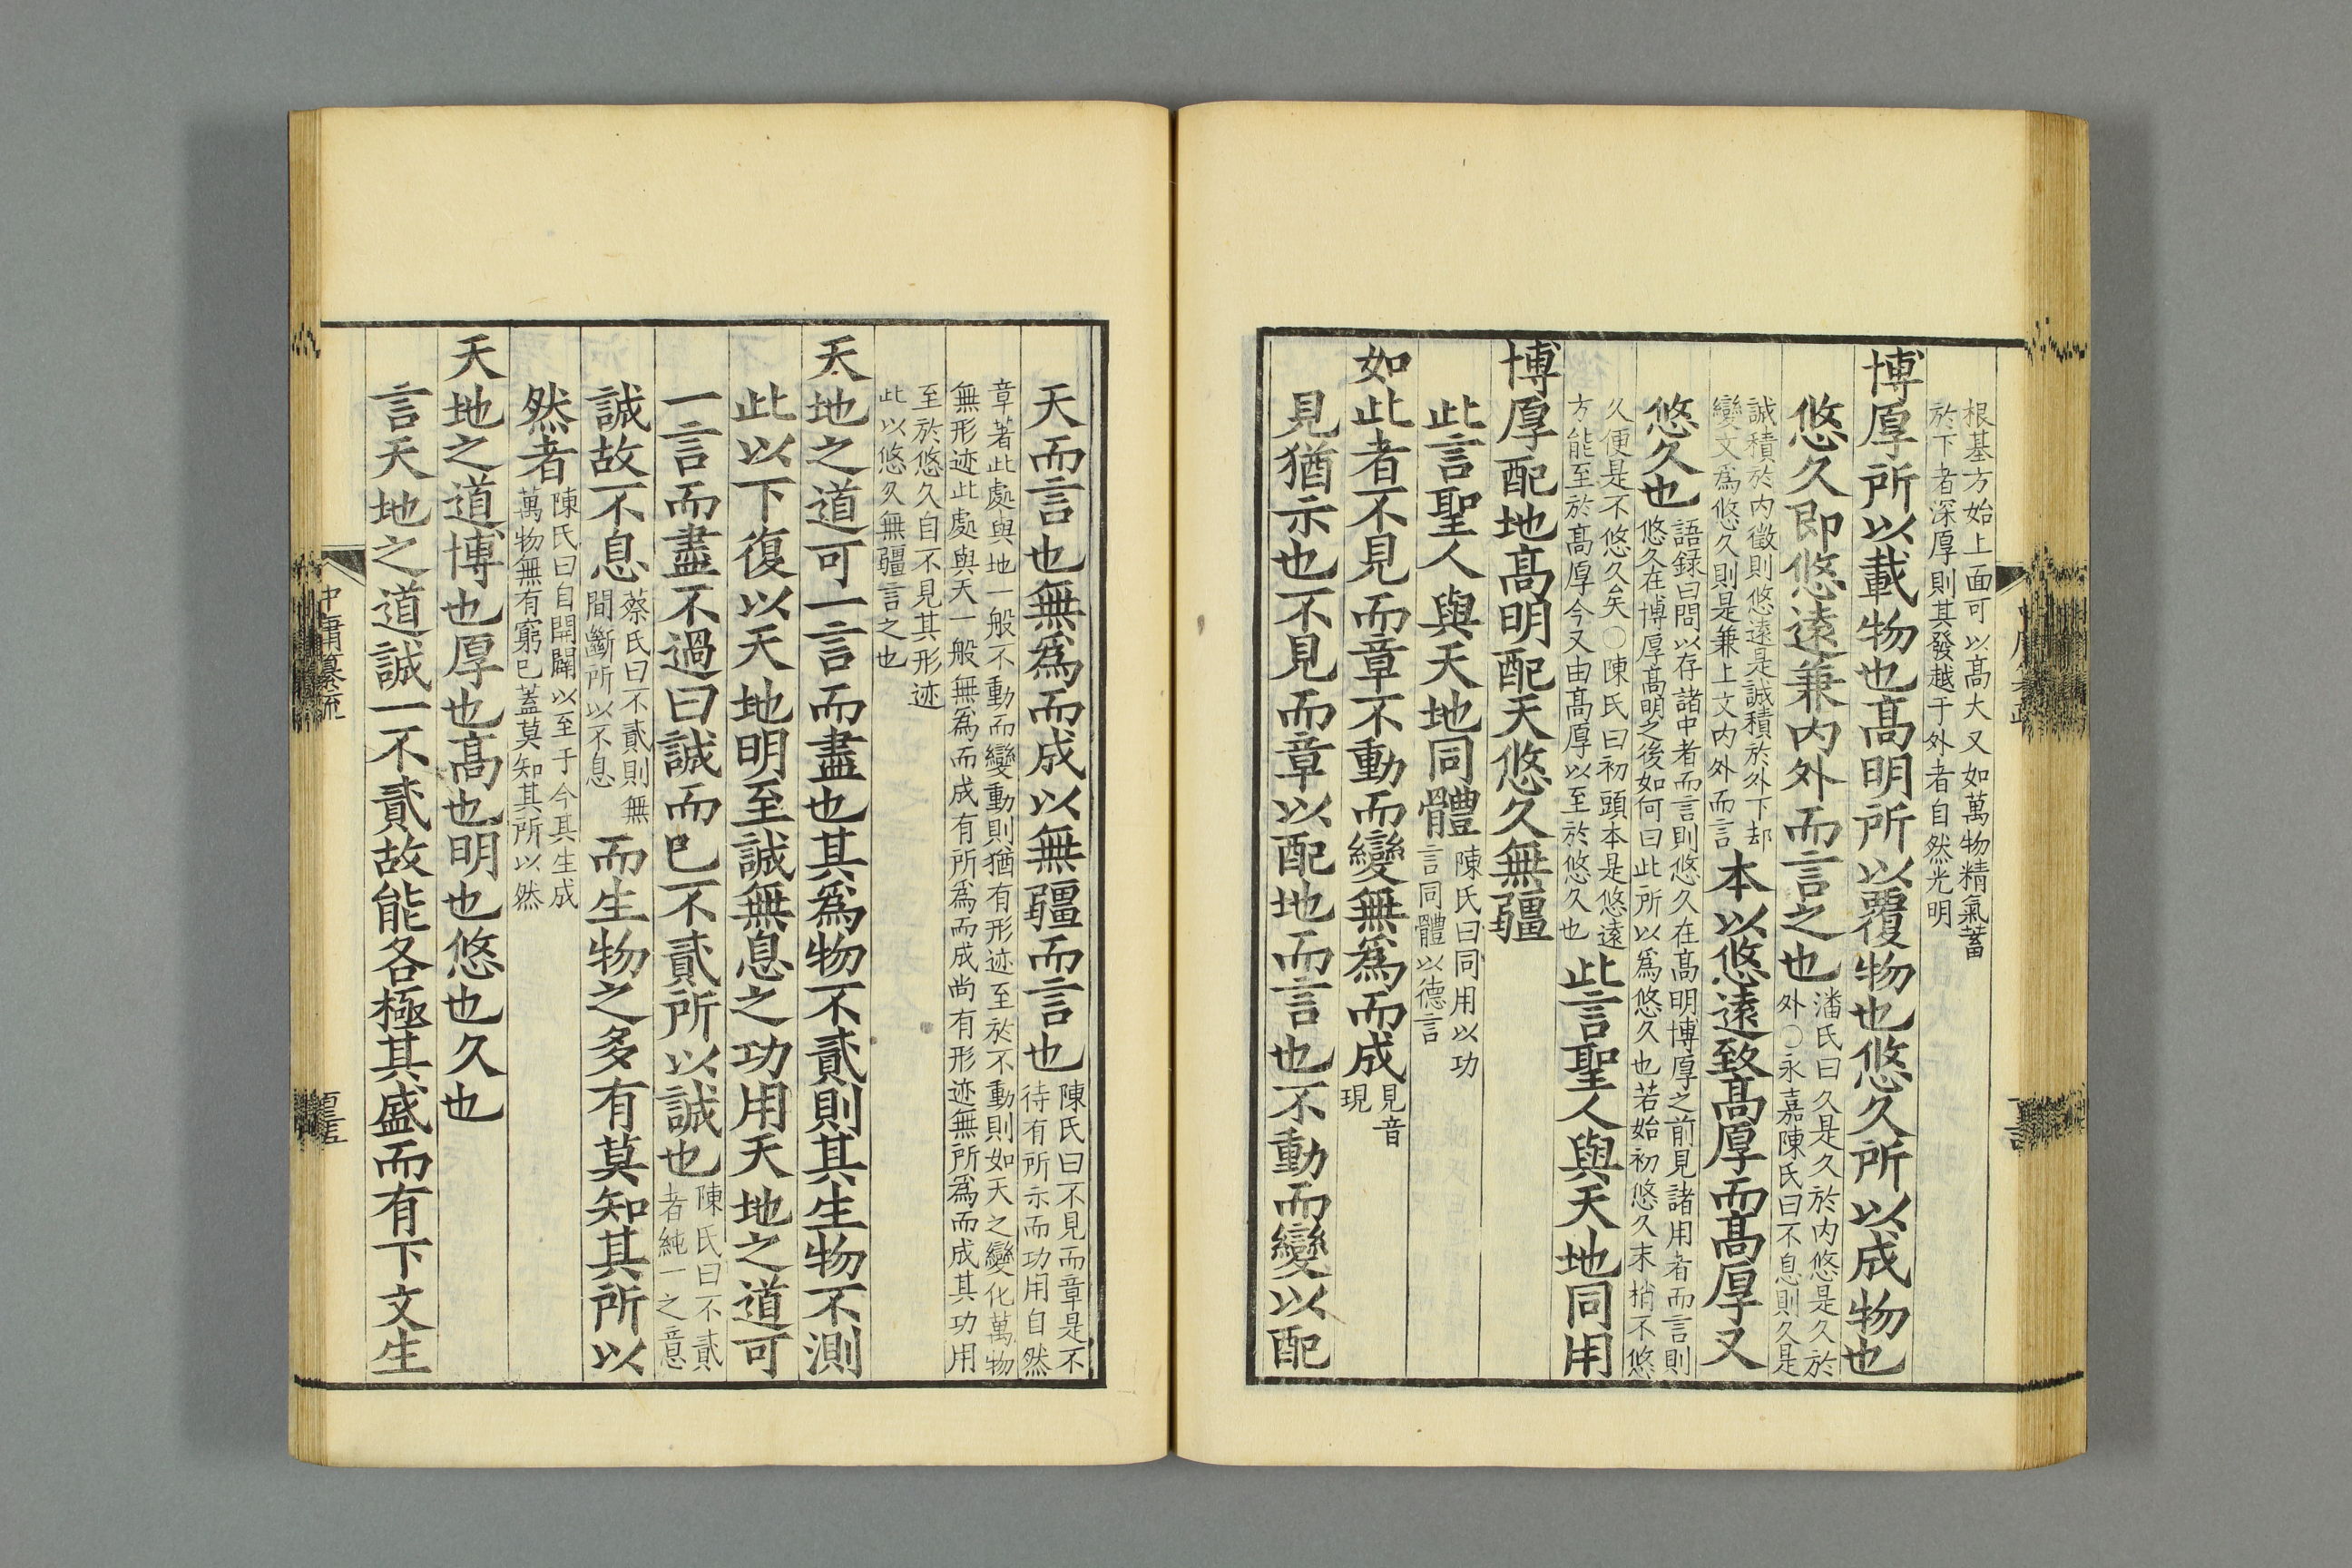 根基方始上面可以髙大又如萬物精氣蓄
於下者深厚則其發越于外者自然光明
博厚所以載物也髙明所以覆物也悠久所以成物也
悠久即悠遠兼内外而言之也
潘氏曰久是久於内悠是久於
外○永嘉陳氏曰不息則久是
誠積於内徵則悠遠是誠積於外下却
變文爲悠久則是兼上文内外而言
本以悠遠致髙厚而髙厚又
悠久也
語録曰問以存諸中者而言則悠久在髙明博厚之前見諸用者而言則
悠久在博厚髙明之後如何曰此所以爲悠久也若始初悠久末梢不悠
久便是不悠久矣○陳氏曰初頭本是悠遠
方能至於髙厚今又由髙厚以至於悠久也
此言聖人與天地同用
博厚配地髙明配天悠久無疆
此言聖人與天地同體
陳氏曰同用以功
言同體以德言
如此者不見而章不動而變無爲而成
見音
現
見猶示也不見而章以配地而言也不動而變以配
天而言也無爲而成以無疆而言也
陳氏曰不見而章是不
待有所示而功用自然
章著此處與地一般不動而變動則猶有形迹至於不動則如天之變化萬物
無形迹此處與天一般無爲而成有所爲而成尚有形迹無所爲而成其功用
至於悠久自不見其形迹
此以悠久無疆言之也
天地之道可一言而盡也其爲物不貳則其生物不測
此以下復以天地明至誠無息之功用天地之道可
一言而盡不過曰誠而已不貳所以誠也
陳氏曰不貳
者純一之意
誠故不息
蔡氏曰不貳則無
間斷所以不息
而生物之多有莫知其所以
然者
陳氏曰自開闢以至于今其生成
萬物無有窮已蓋莫知其所以然
天地之道博也厚也髙也明也悠也久也
言天地之道誠一不貳故能各極其盛而有下文生
中庸纂疏